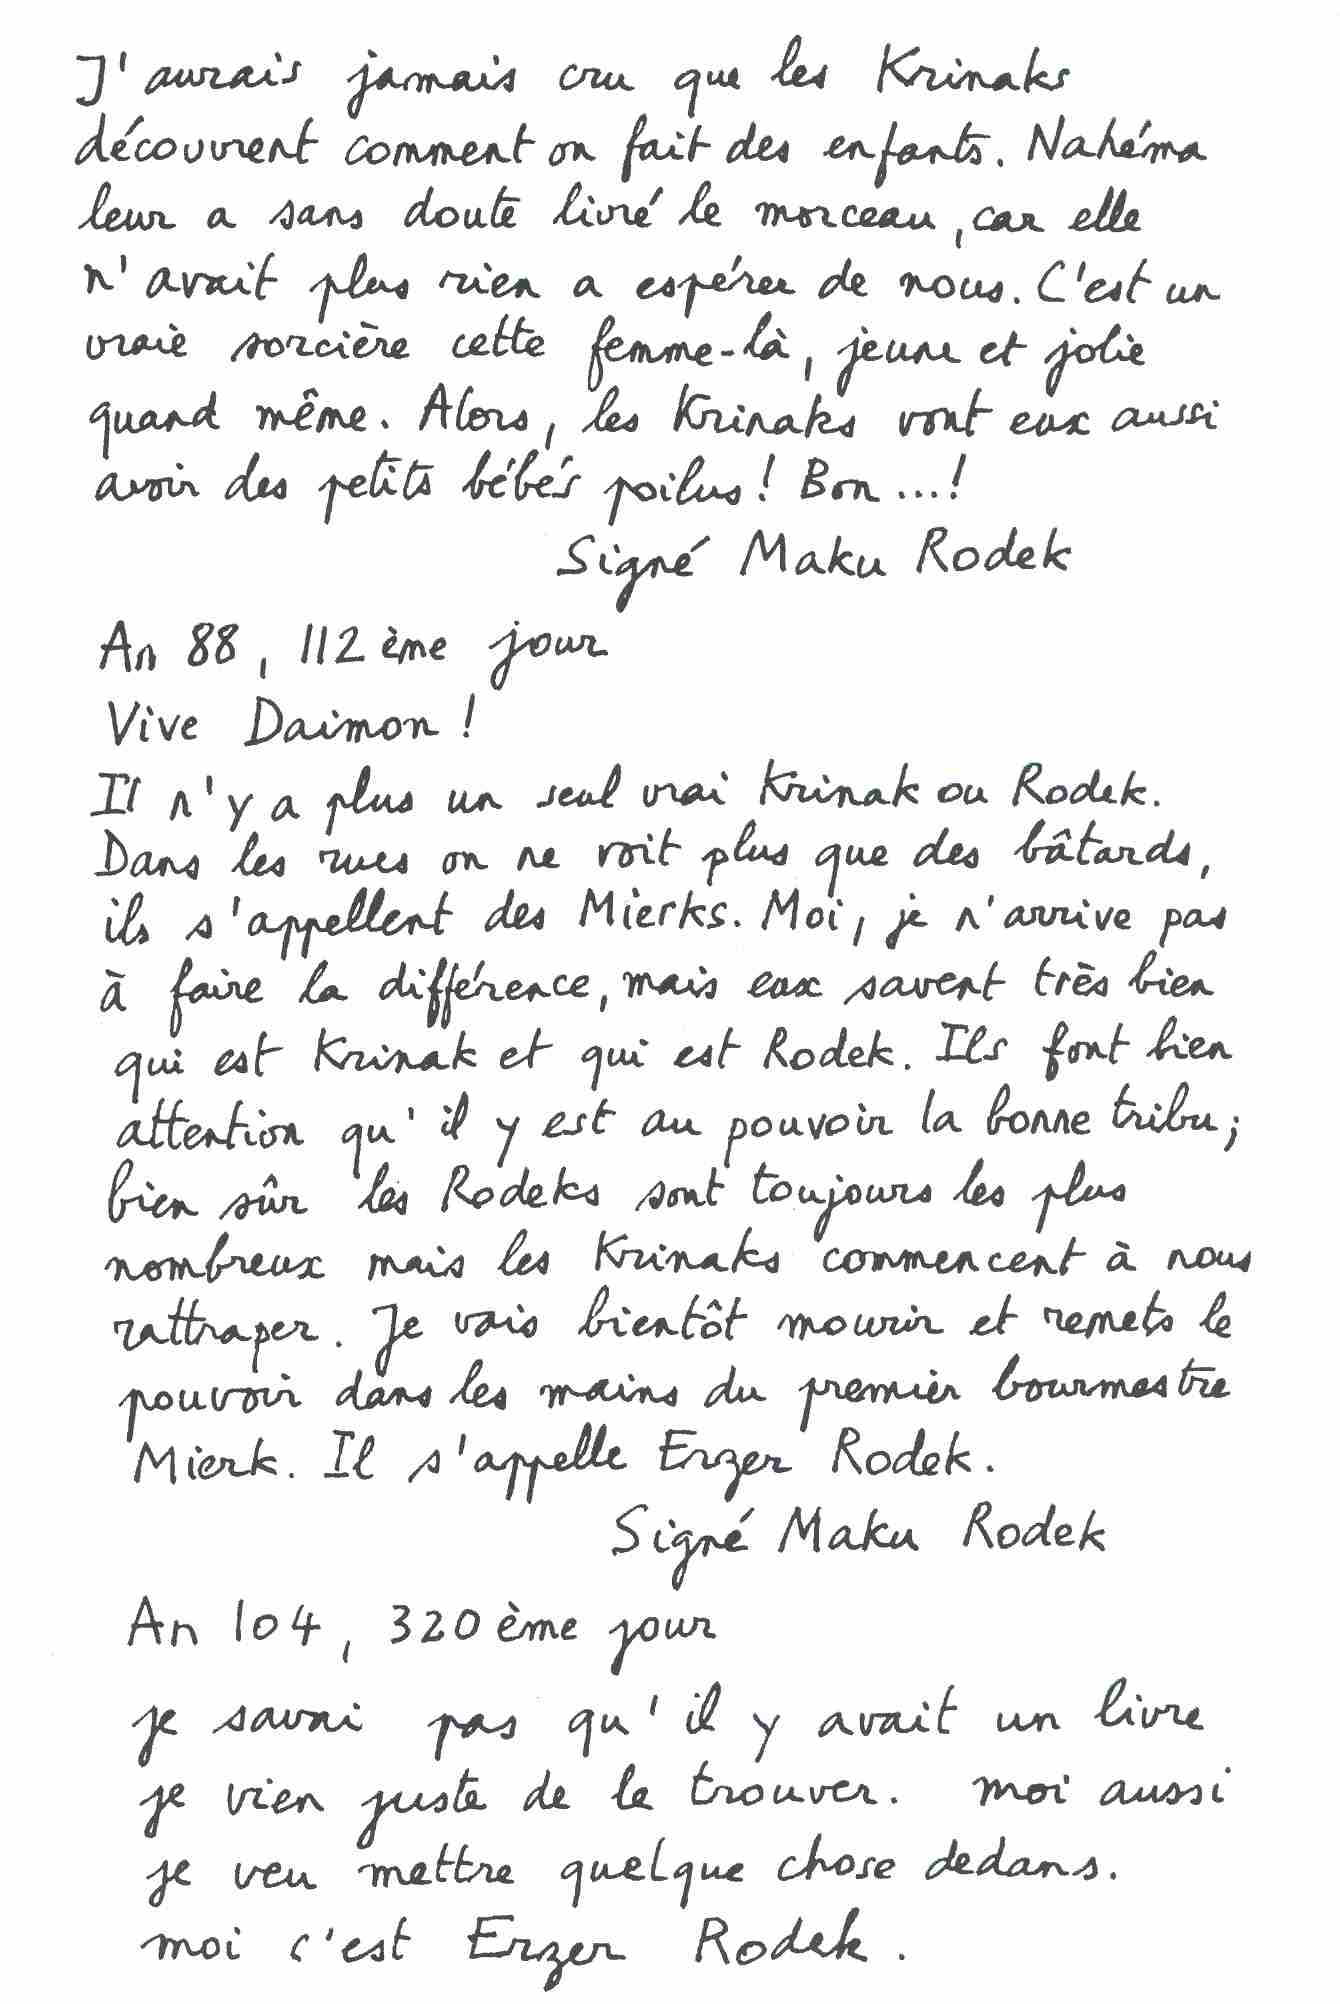 J'aurais jamais cru que les Krinaks
découvrent comment on fait des enfants. Nahéma
leur a sans doute livré le morceau, car elle
n'avait plus rien a espérer de nous. C'est un
vraie sorcière cette femme-là, jeune et jolie
quand même. Alors, les Krinaks vont eux aussi
avoir des petits bébés poilus! Bon...!
Signé Maku Rodek
An 88, 112 ème jour
Vive Daimon!
Il n'y a plus un seul vrai Krinak ou Rodek.
Dans les rues on ne voit plus que des bâtards,
ils s'appellent des Mierks. Moi, je n'arrive pas
à faire la différence, mais eux savent très bien
qui est Krinak et qui est Rodek. Ils font bien
attention qu'il y est au pouvoir la bonne tribu;
bien sûr les Rodeks sont toujours les plus
nombreux mais les Krinaks commencent à nous
rattraper. Je vais bientôt mourir et remets le
pouvoir dans les mains du premier bourmestre
Mierk. Il s'appelle Erzer Rodek.
Signé Maku Rodek
An 104, 320 ème jour
je savai pas qu'il y avait un livre
je vien juste de le trouver. moi aussi
je veu mettre quelque chose dedans.
moi c'est Erzer Rodek.